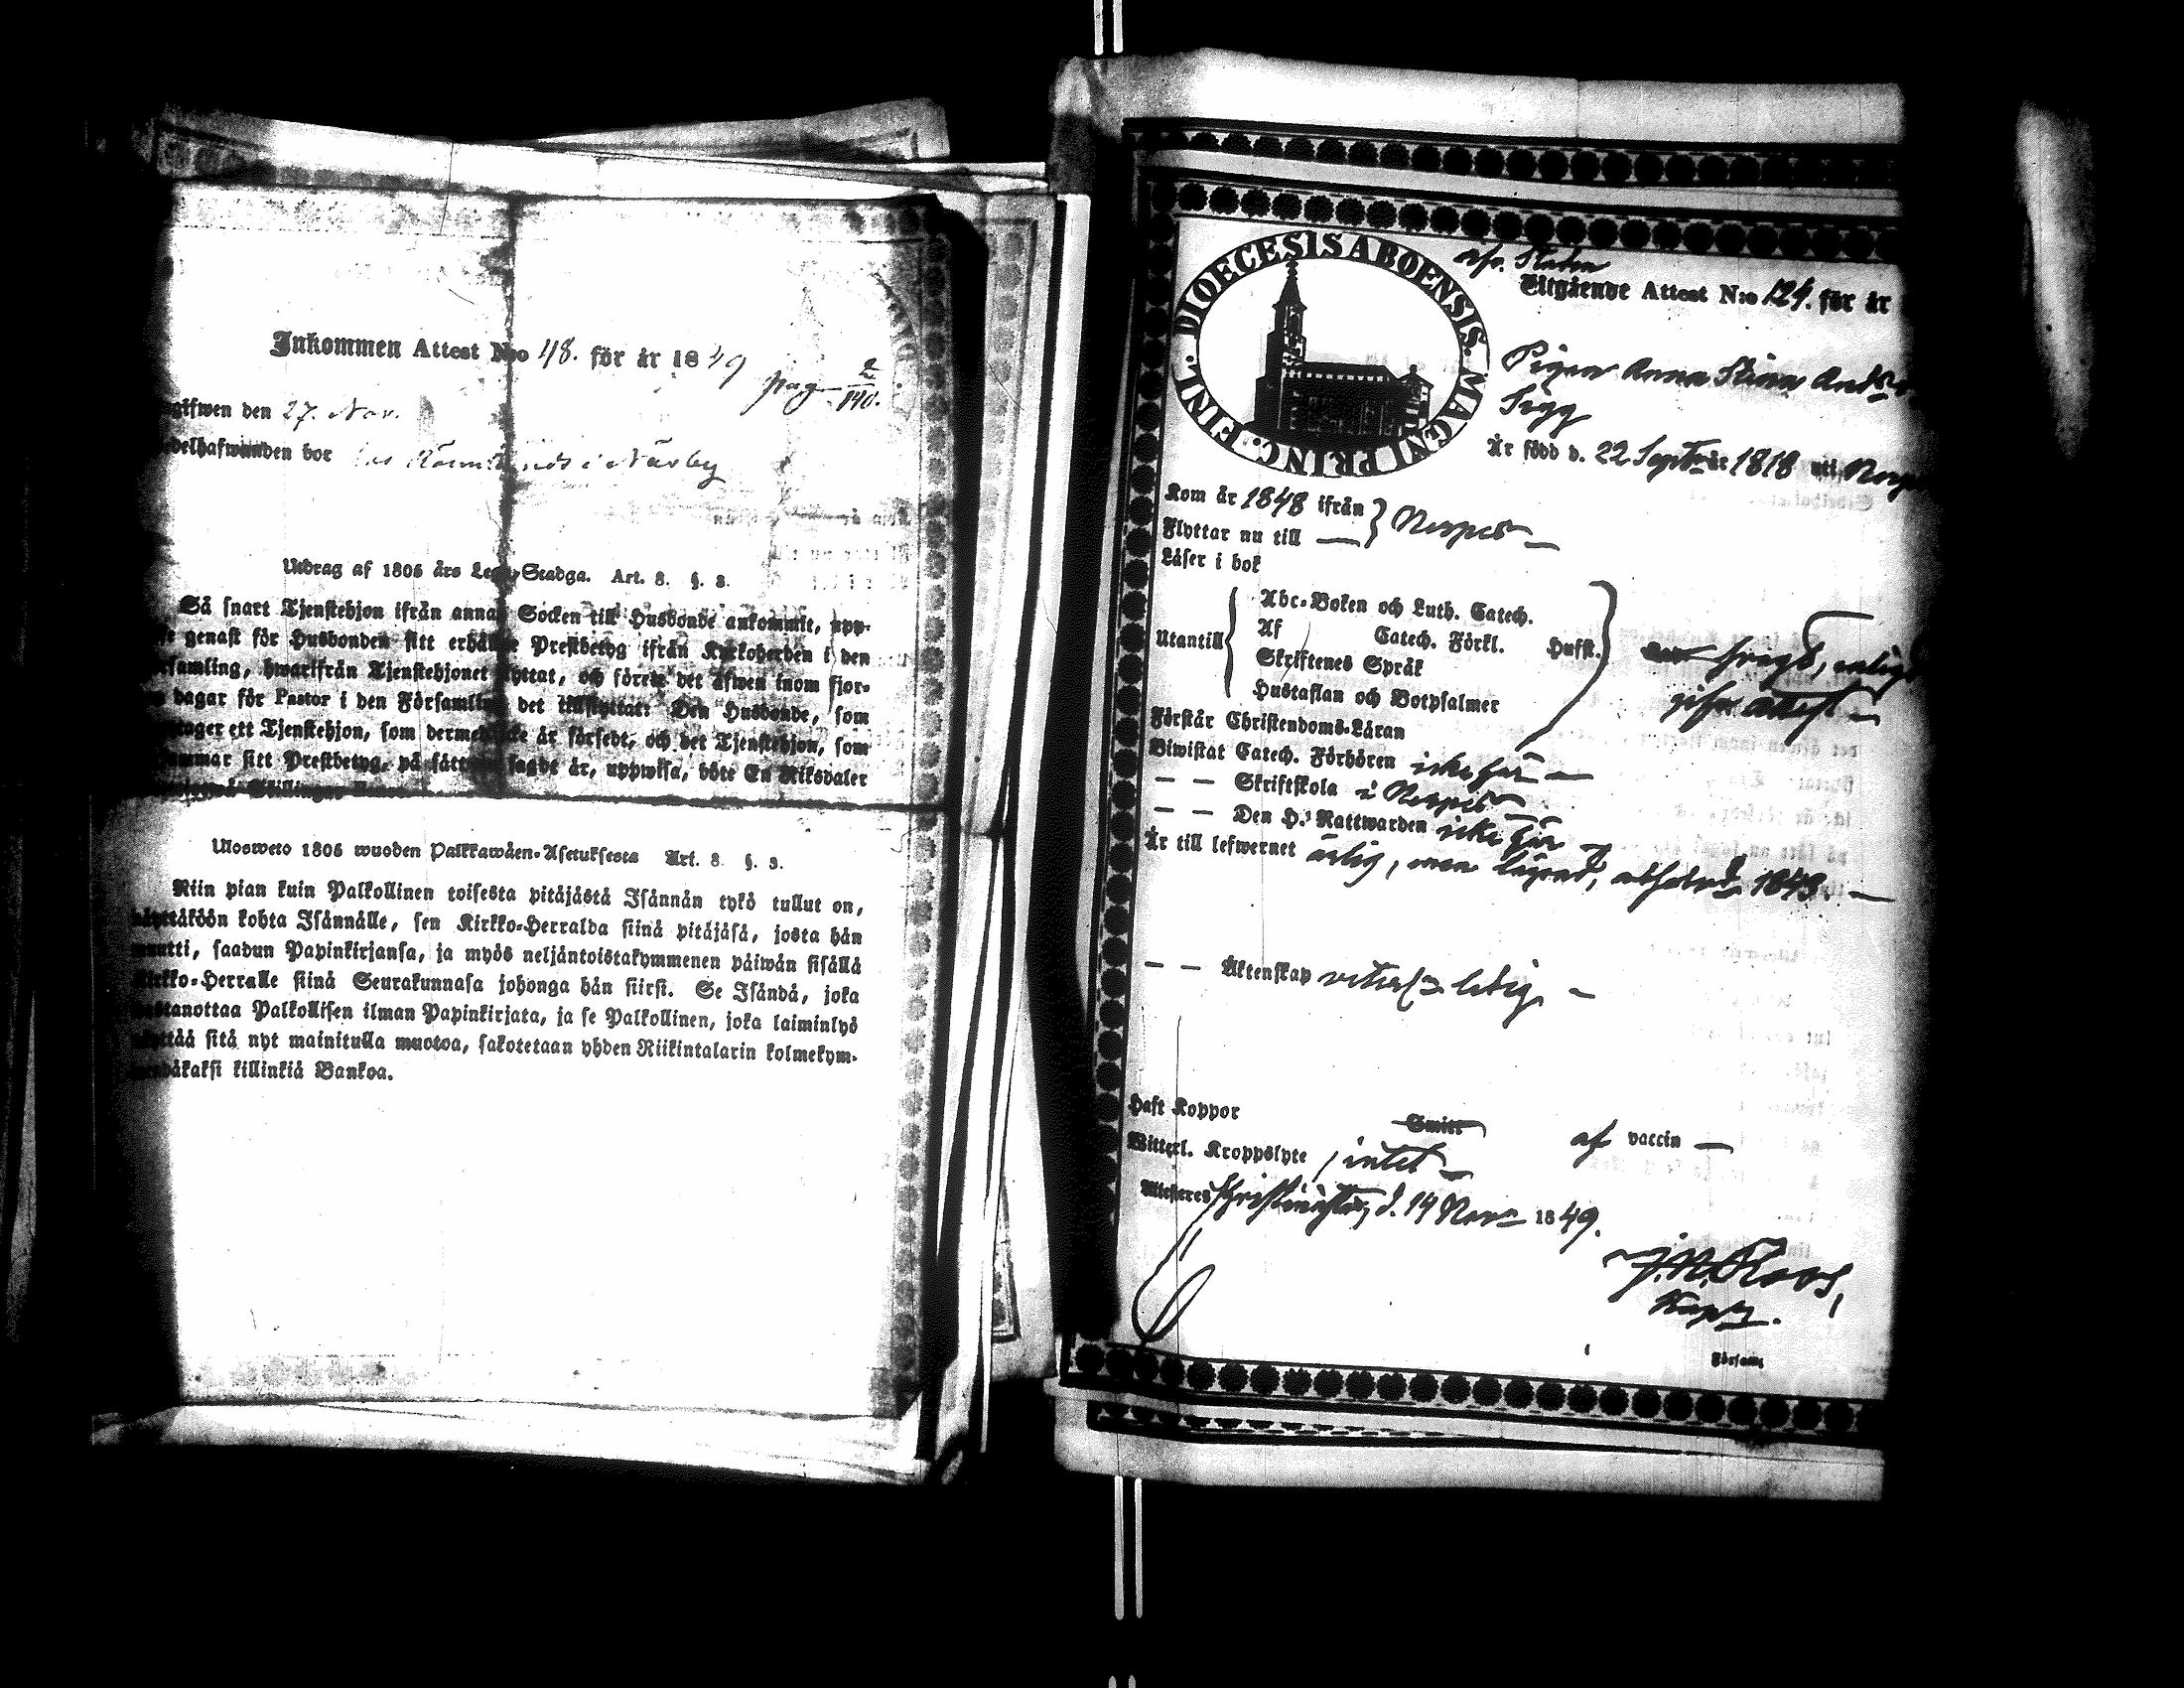 Inkommen Attest N:o 48. för år 1849
pag. 2/140.
gifwen den 27. Nov.
delhafwanden bor i Närby
Utdrag af 1805 års Lego-Stadga. Art. 8. §. 8.
Så snart Tjenstehjon ifrån annan Socken till Husbonde ankommit, upp-
genast för Husbonden sitt erhållne Prestbetyg ifrån Kyrkoherden i den
samling, hwarifrån Tjenstehjonet flyttat, och förete det äfwen inom fjor-
dagar för Pastor i den Församling det tillflyttat: Den Husbonde, som
tager ett Tjenstehjon, som dermed icke är försedt, och det Tjenstehjon, som
summar sitt Prestbetyg, på sätt nu sagdt är, uppwisa, böte En Riksdaler
Skillingar
Ulosweto 1805 wuoden Palkkawäen-Asetuksesta Art. 8. §. 8.
Niin pian kuin Palkollinen toisesta pitäjästä Isännän tykö tullut on,
näyttäköön kohta Isännälle, sen Kirkko-Herralda siinä pitäjäsä, josta hän
muutti, saadun Papinkirjansa, ja myös neljäntoistakymmenen päiwän sisällä
Kirkko-Herralle siinä Seurakunnasa johonga hän siirsi. Se Isändä, joka
wastanottaa Palkollisen ilman Papinkirjata, ja se Palkollinen, joka laiminlyö
näyttää sitä nyt mainitulla muotoa, sakotetaan yhden Riikintalarin kolmekym-
mendäkaksi killinkiä Bankoa.
DIOECESIS ABOENSIS. MAGNI PRINC. FINL.
Utgående Attest N:o 124. för år
Pigan Anna Stina Ands
Sigg
Är född d. 22 Septr år 1818 uti
Kom år 1848 ifrån } Nerpes
Flyttar nu till
Läser i bok
Abc-Boken och Luth. Catech.
Utantill Af Catech. Förkl. Husst.
Skriftenes Språk
Hustaflan och Botpsalmer
attest
Förstår Christendoms-Läran
Biwistat Catech. Förhören icke här
— — Skriftskola i Nerpes
— — Den H. Nattwarden icke här
Är till lefwernet ärlig, men lägrad, 1843.
— — Äktenskap ledig
Haft Koppor Smitt af vaccin
Witterl. Kroppslyte intet
Attesteras Christinestad, d. 14 Novr 1849.
J. N. Roos,
Församl.